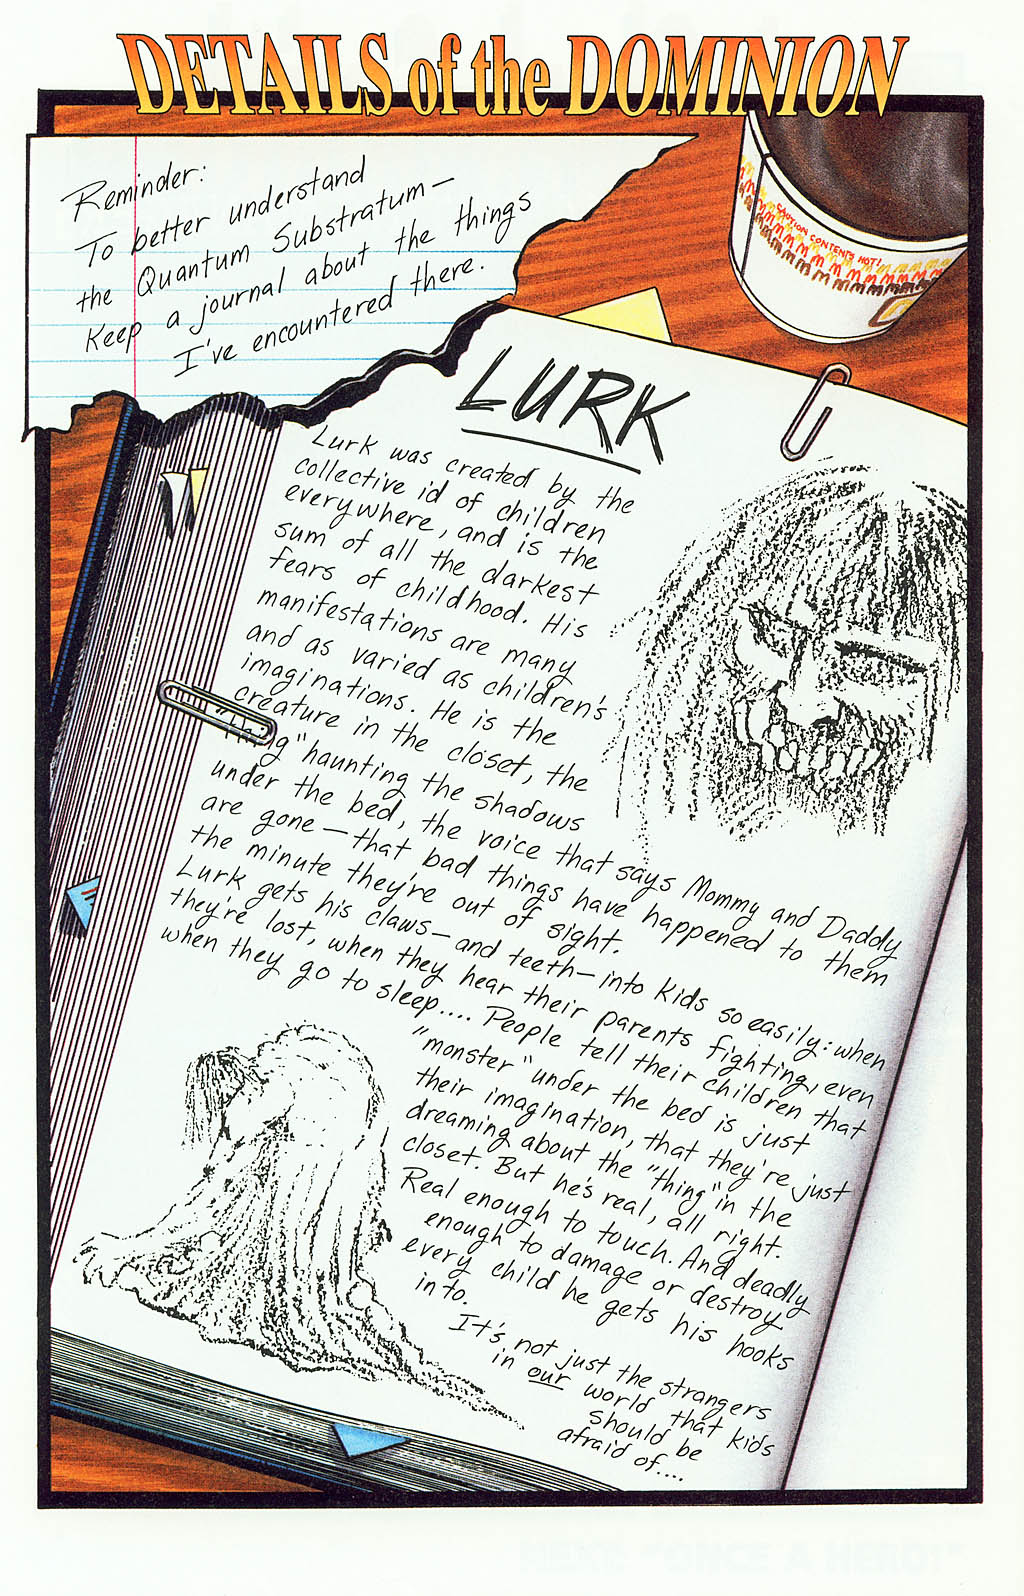 DETAILS of the DOMINION
Reminder:
To better understand
the Quantum Substratum—
Keep a journal about the things
I've encountered there.
CAUTION CONTENTS HOT!
LURK
Lurk was created by the
collective id of children
everywhere, and is the
sum of all the darkest
fears of childhood. His
manifestations are many
and as varied as children's
imaginations. He is the
creature in the closet, the
haunting the shadows
under the bed, the voice that says Mommy and Daddy
are gone—that bad things have happened to them
the minute they're out of sight.
Lurk gets his claws—and teeth—into kids so easily: when
they're lost, when they hear their parents fighting, even
when they go to sleep.... People tell their children that
"monster" under the bed is just
their imagination, that they're just
dreaming about the "thing" in the
closet. But he's real, all right.
Real enough to touch. And deadly
enough to damage or destroy
every child he gets his hooks
into.
It's not just the strangers
in our world that kids
should be
afraid of....